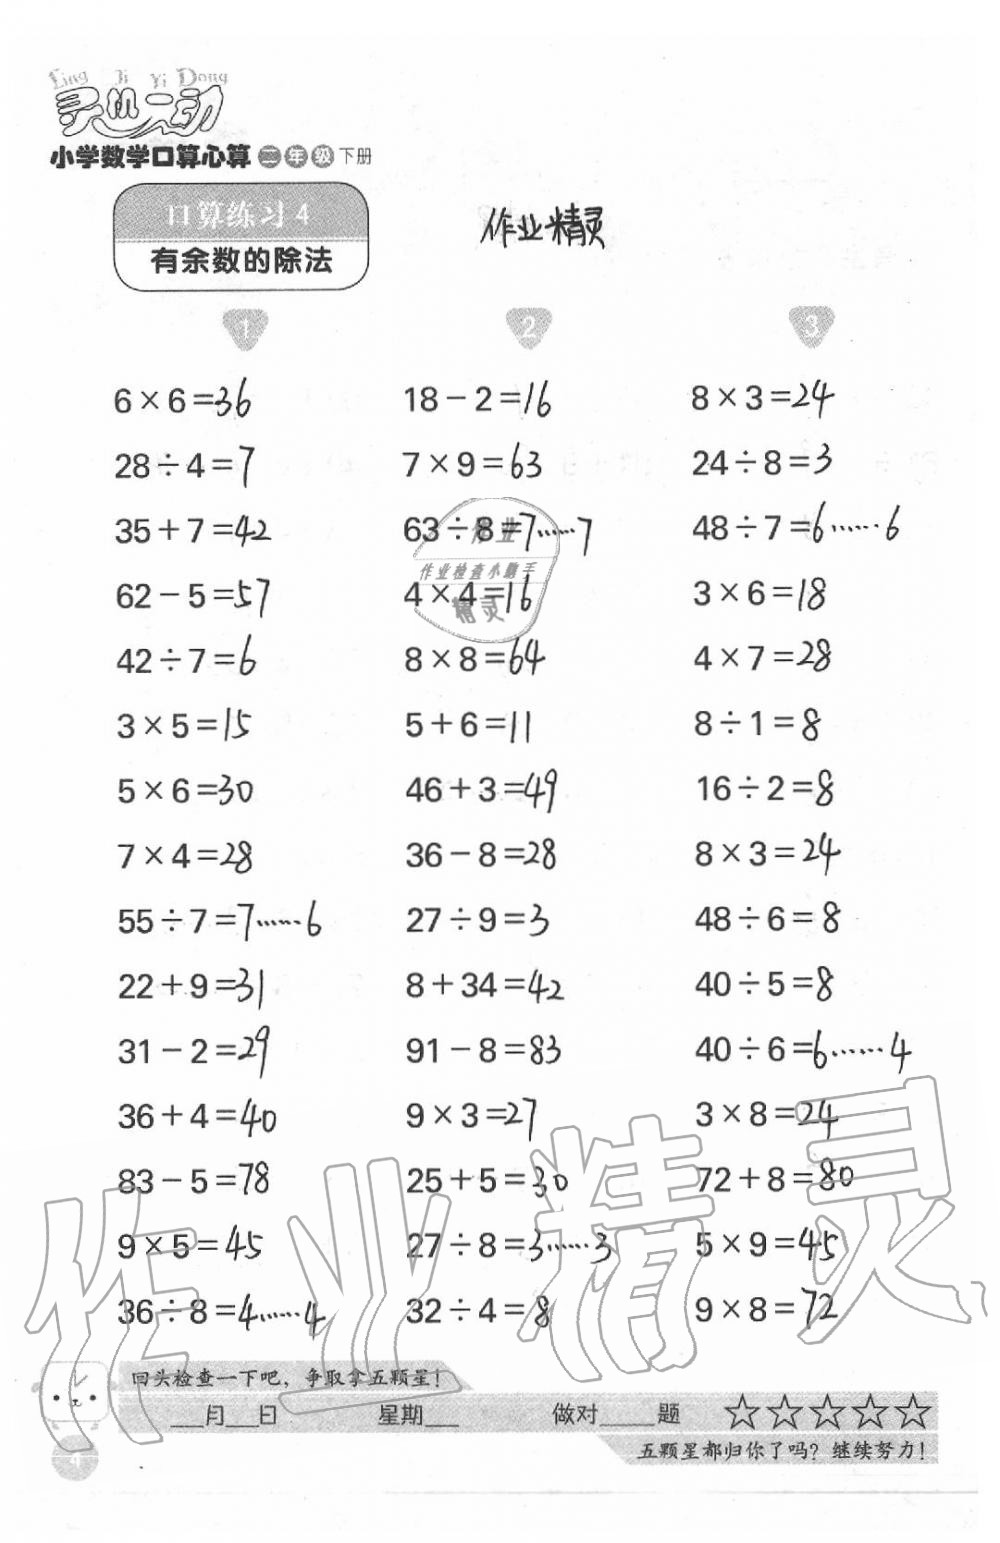 Ling Ji Yi Dong
灵机一动
小学数学口算心算 二年级 下册
口算练习4
有余数的除法
作业精灵
1 2 3
6×6=36 18-2=16 8×3=24
28÷4=7 7×9=63 24÷8=3
35+7=42 63÷8=7……7 48÷7=6……6
作业
作业检查小题手
精灵
62-5=57 4×4=16 3×6=18
42÷7=6 8×8=64 4×7=28
3×5=15 5+6=11 8÷1=8
5×6=30 46+3=49 16÷2=8
7×4=28 36-8=28 8×3=24
55÷7=7……6 27÷9=3 48÷6=8
22+9=31 8+34=42 40÷5=8
31-2=29 91-8=83 40÷6=6……4
36+4=40 9×3=27 3×8=24
83-5=78 25+5=30 72+8=80
9×5=45 27÷8=3……3 5×9=45
36÷8=4……4 32÷4=8 9×8=72
作业精灵
回头检查一下吧，争取拿五颗星！
___月___日 星期___ 做对____题 ☆☆☆☆☆
五颗星都归你了吗？继续努力！
4